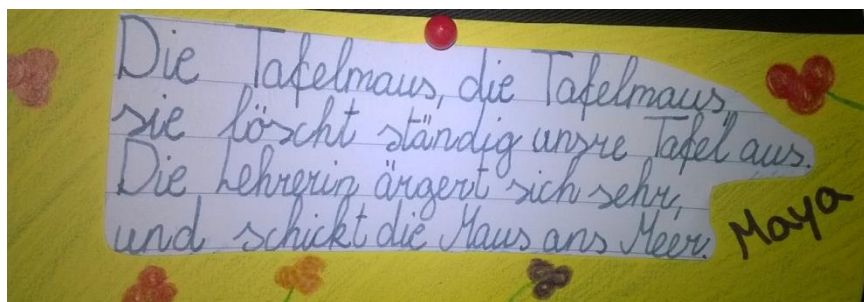 Die Tafelmaus, die Tafelmaus,
sie löscht ständig unsre Tafel aus.
Die Lehrerin ärgert sich sehr,
und schickt die Maus ans Meer.
Maya